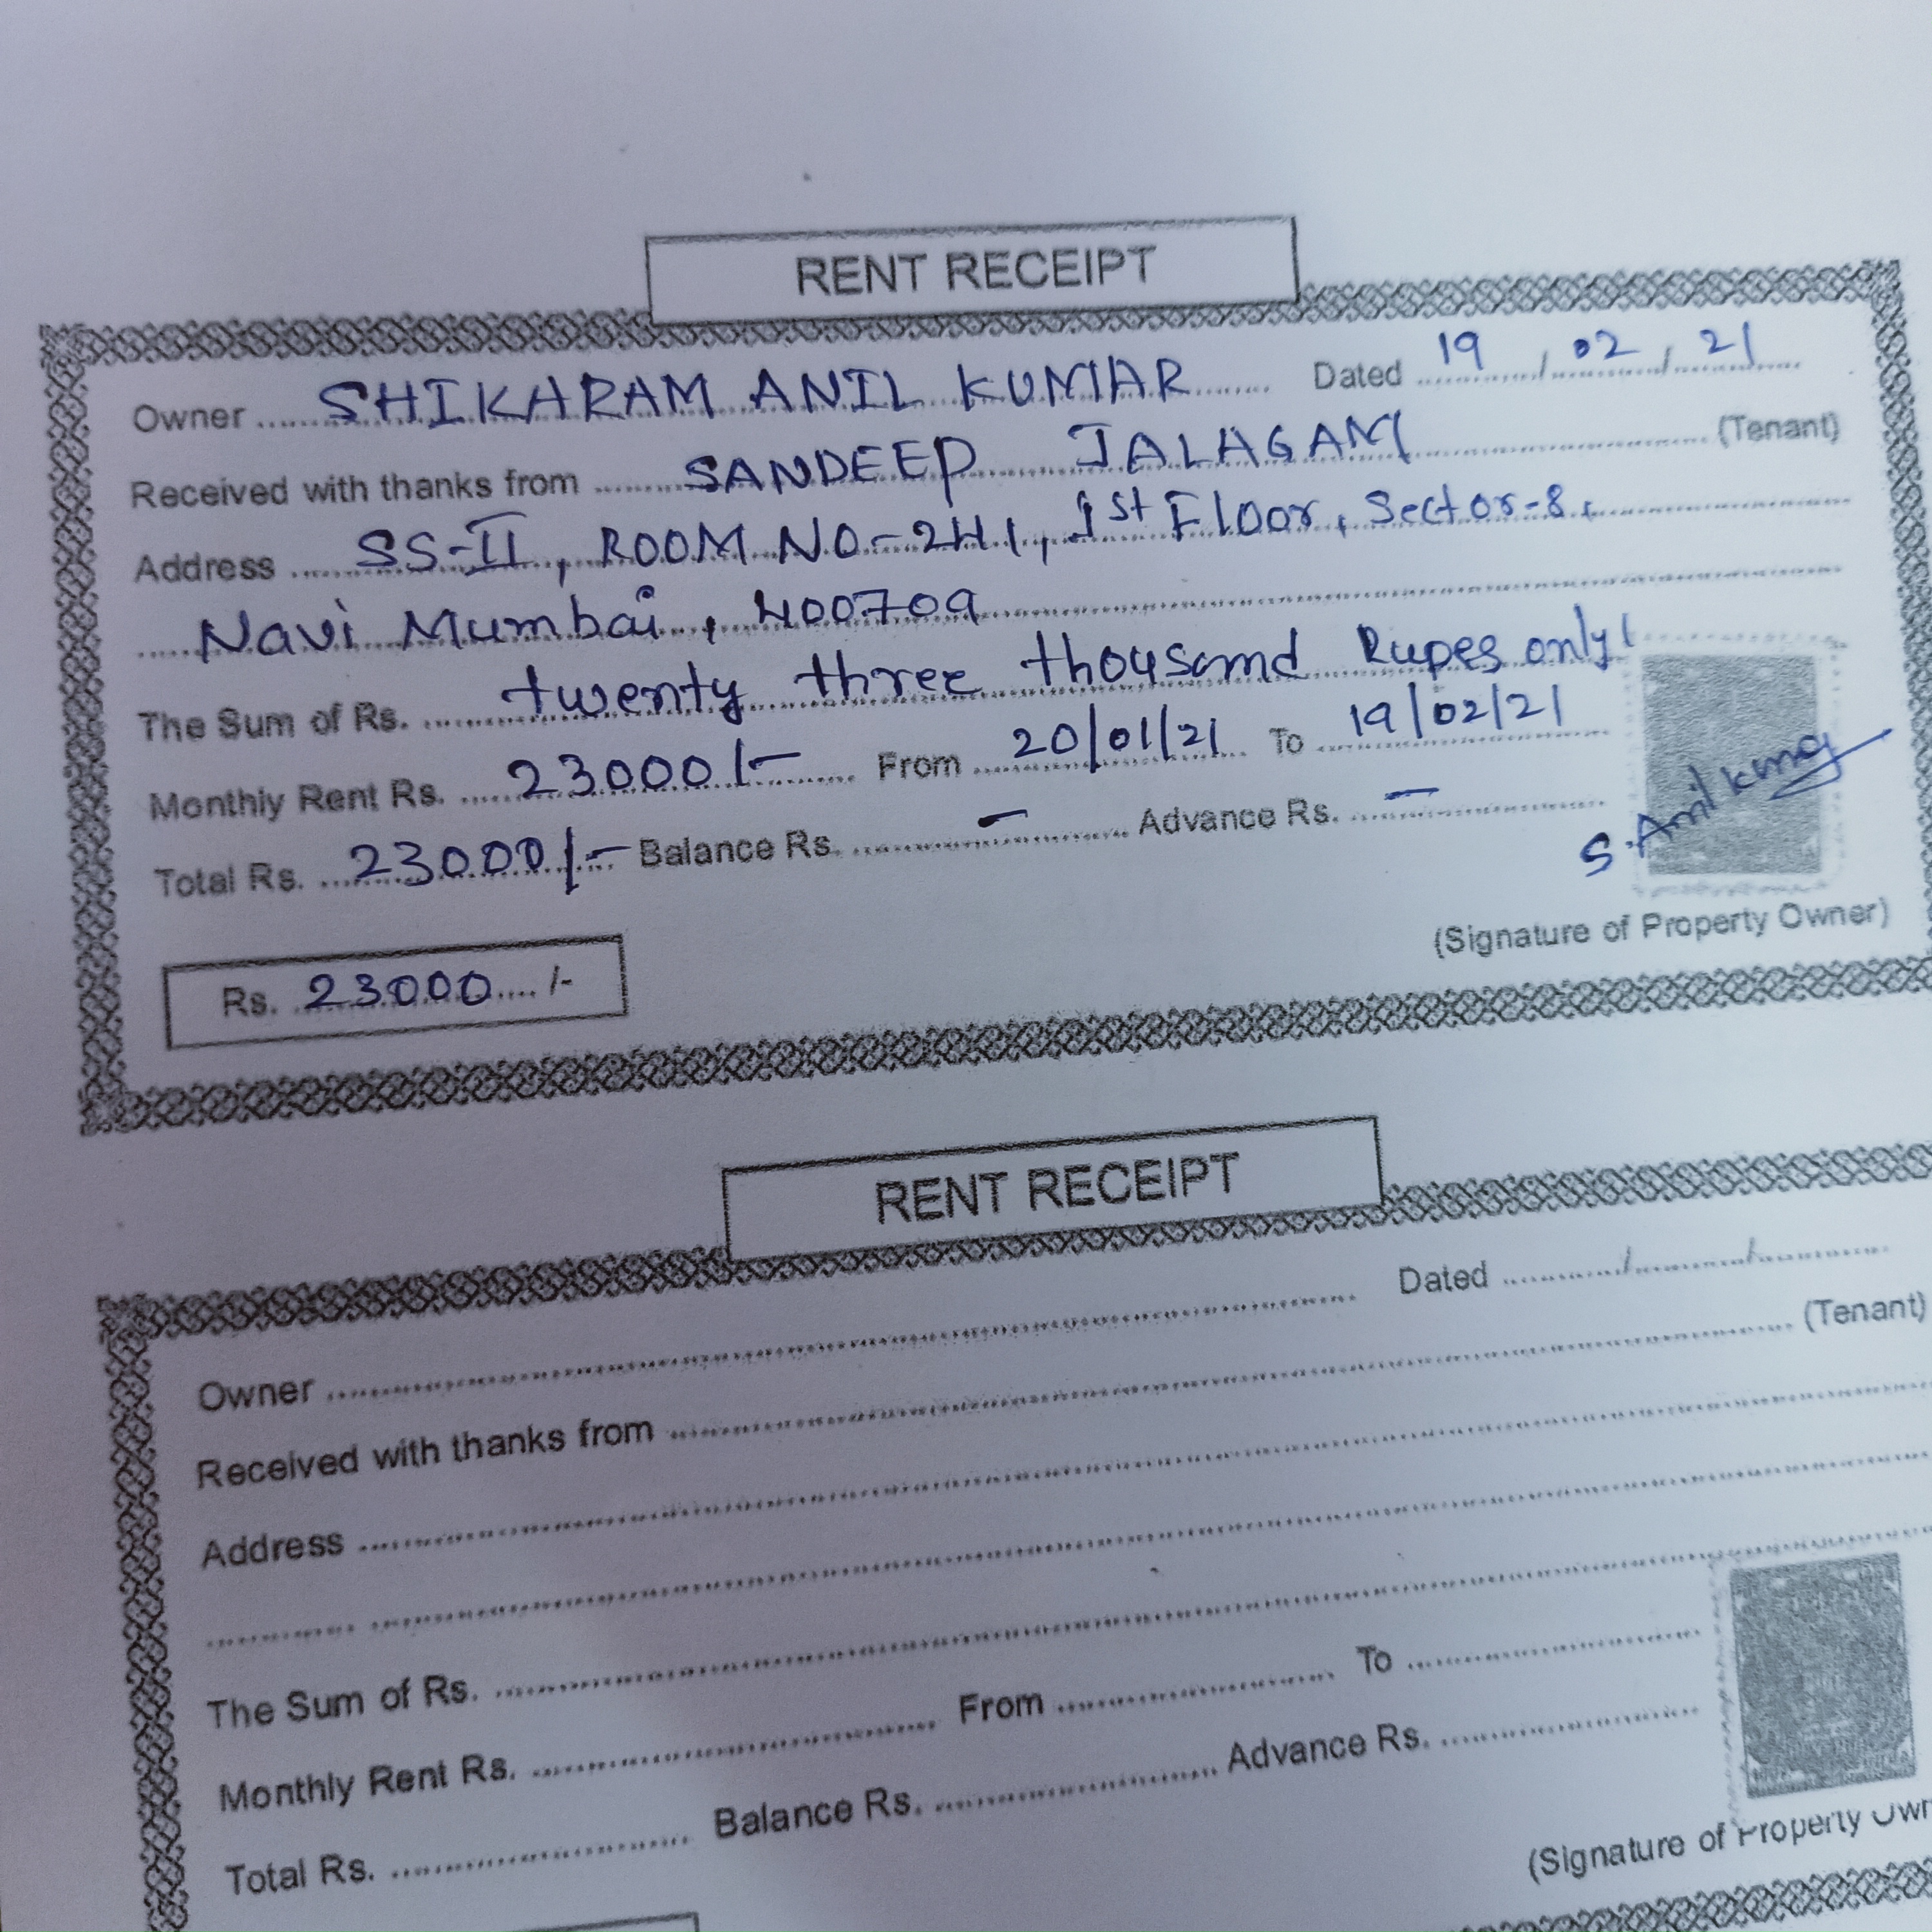 RENT RECEIPT
Owner SHIKHARAM ANIL KUMAR Dated 19 / 02 / 21
Received with thanks from SANDEEP JALAGAM (Tenant)
Address SS-II, ROOM NO-241, 1st Floor, Sector-8,
Navi Mumbai, 400709
The Sum of Rs. twenty three thousand Rupes only/
Monthly Rent Rs. 23000/- From 20/01/21 To 19/02/21
Total Rs. 23000/- Balance Rs. - Advance Rs. -
S. Anil Kumar
(Signature of Property Owner)
Rs. 23000 /-
RENT RECEIPT
Owner Dated / /
Received with thanks from (Tenant)
Address
The Sum of Rs.
Monthly Rent Rs. From To
Total Rs. Balance Rs. Advance Rs.
(Signature of Property Own